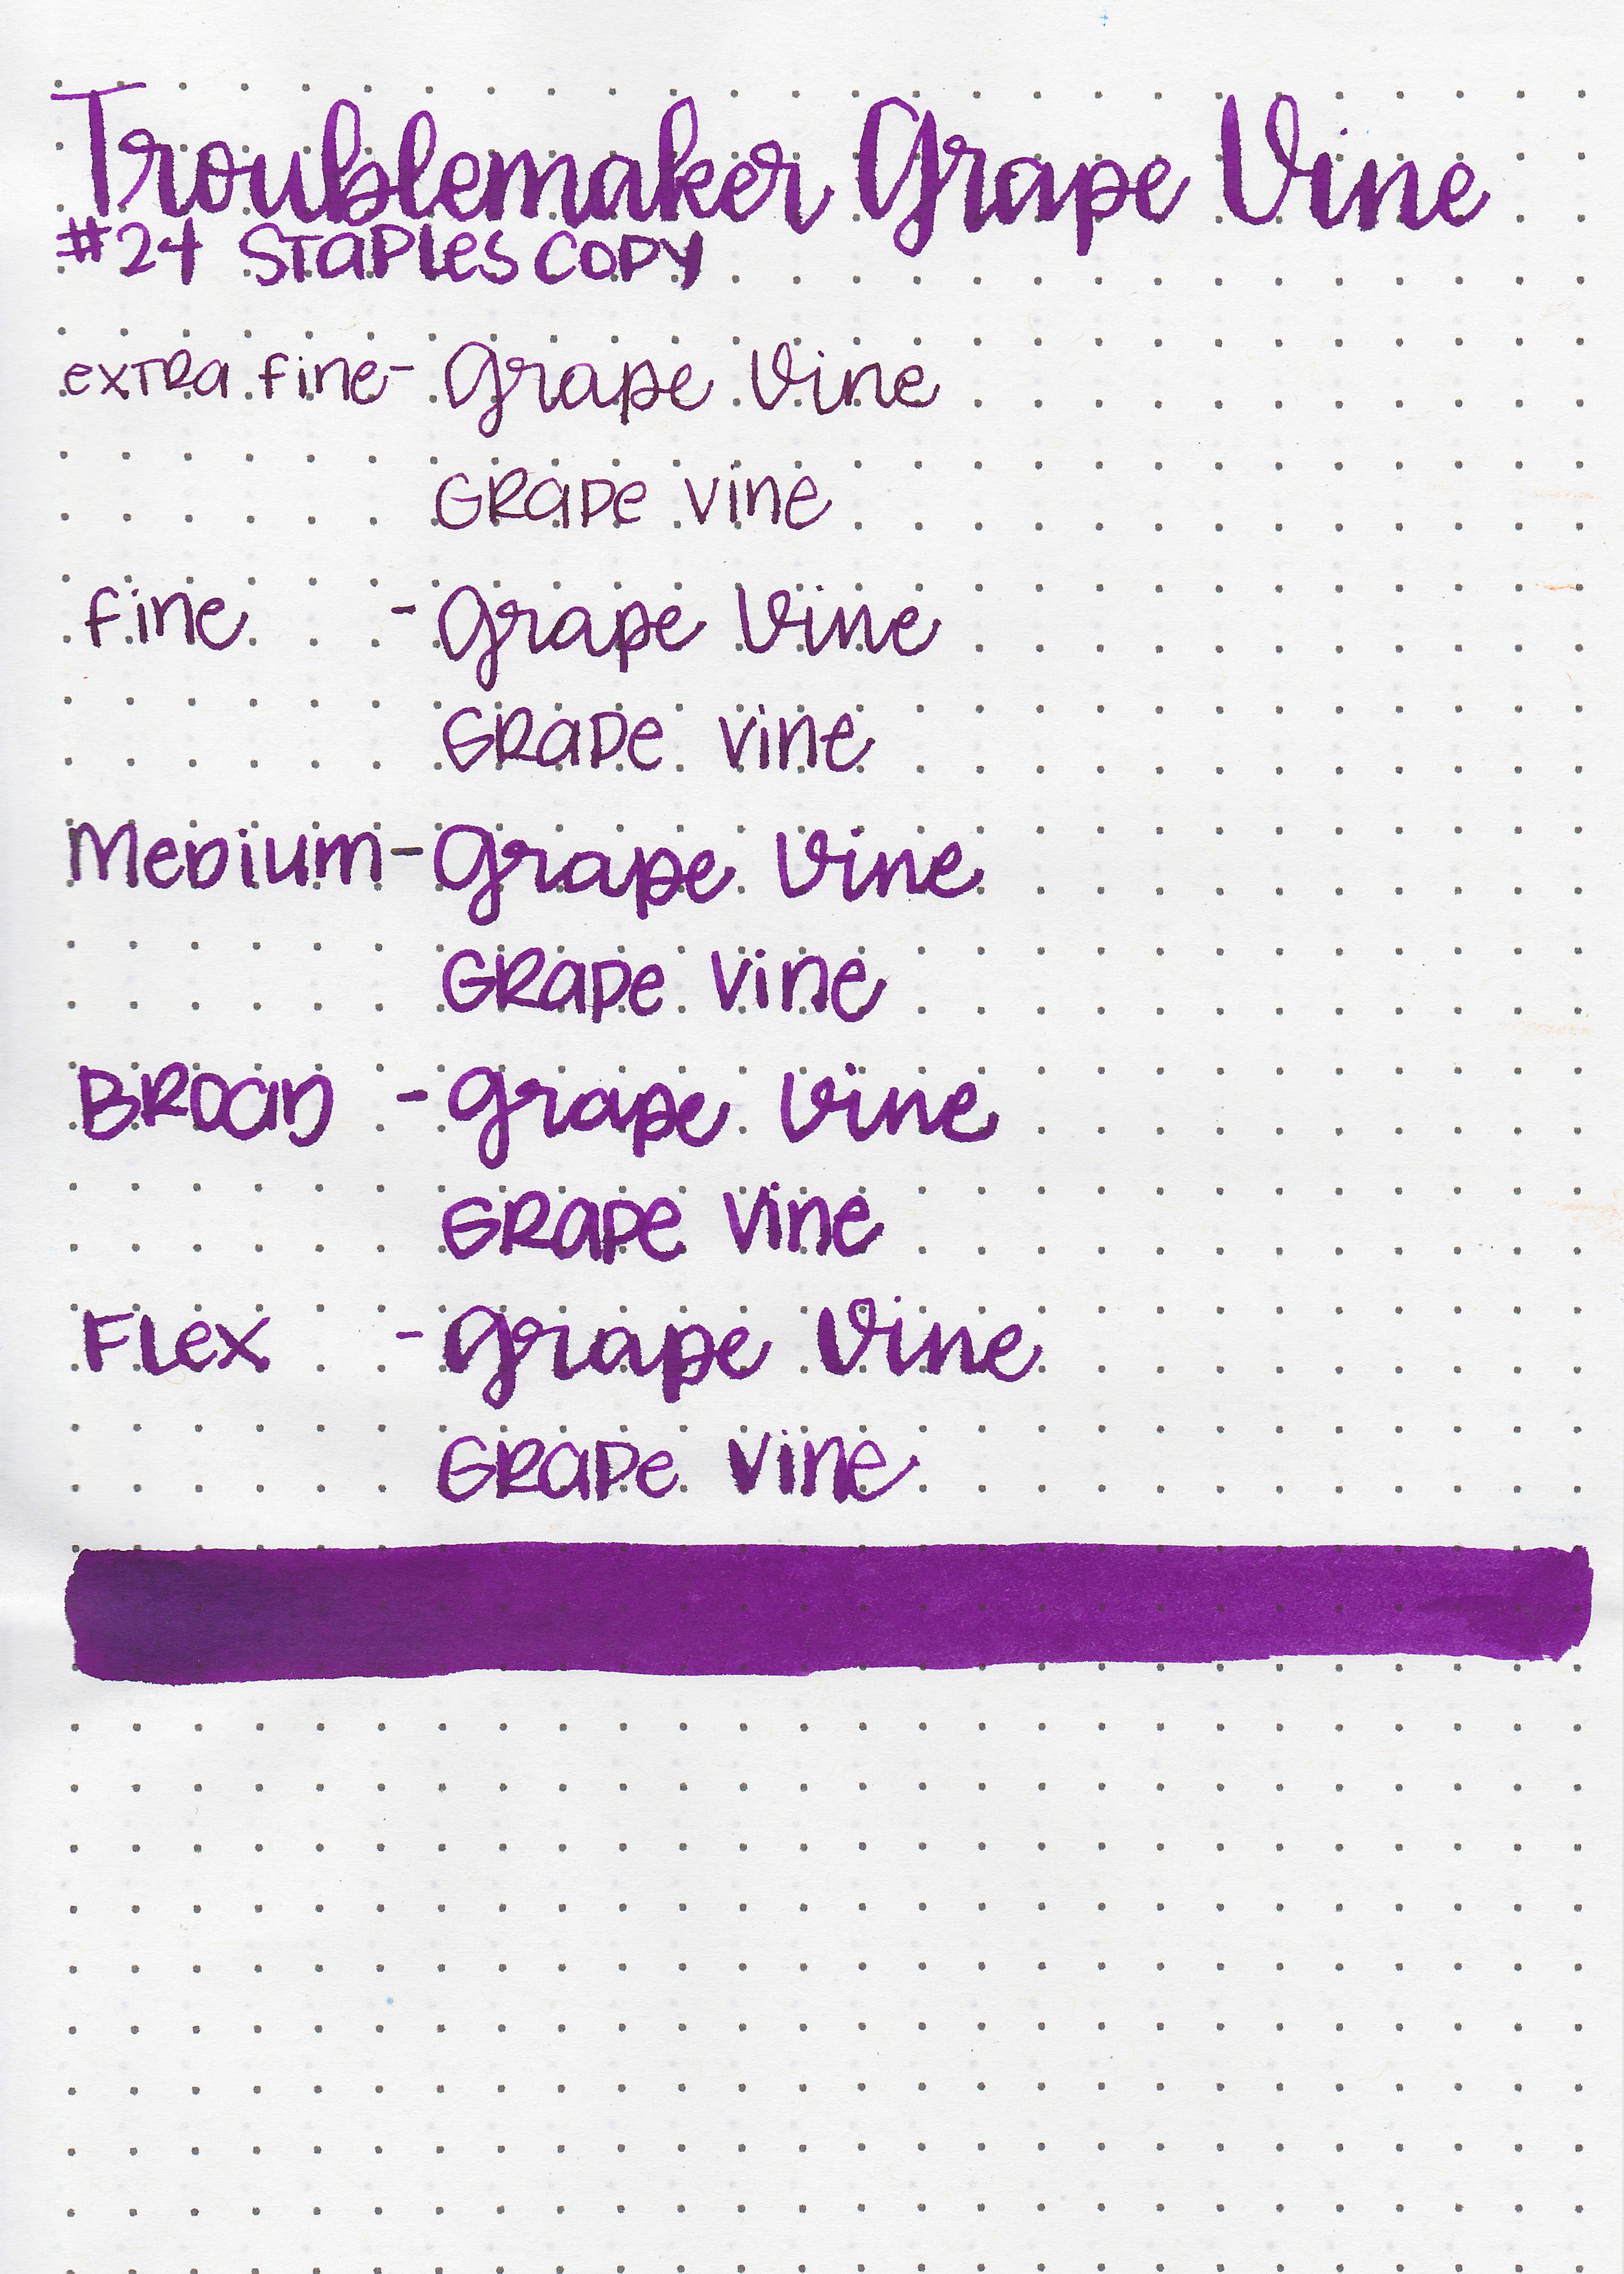 Troublemaker Grape Vine
#24 Staples Copy
extra fine - Grape Vine
Grape Vine
fine - Grape Vine
Grape Vine
Medium - Grape Vine
Grape Vine
Broad - Grape Vine
Grape Vine
Flex - Grape Vine
Grape Vine